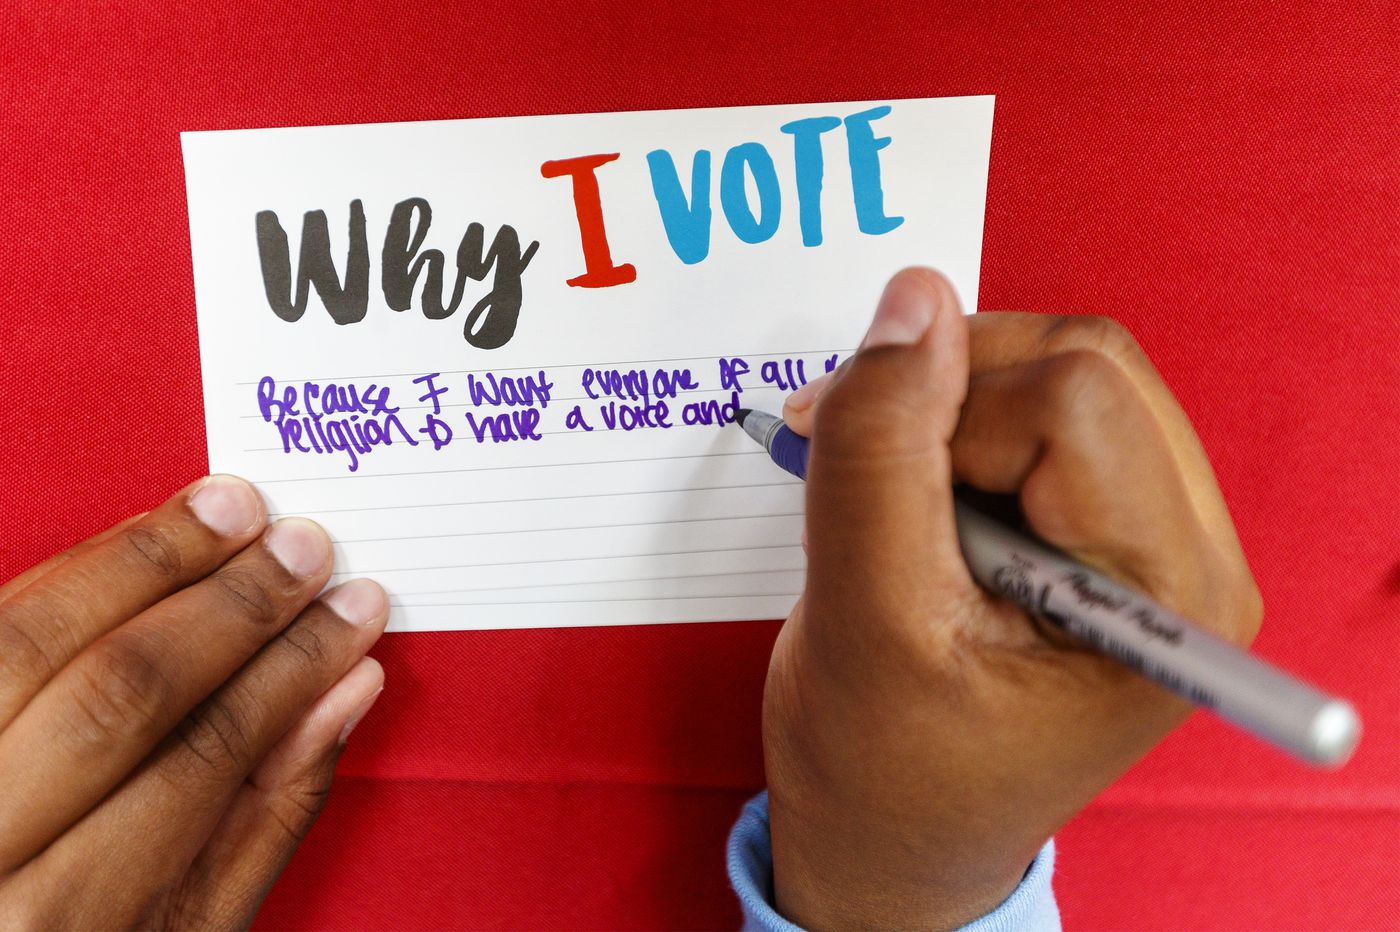 Why I VOTE
Because I want everyone of all
religion to have a voice and
Paper Mate